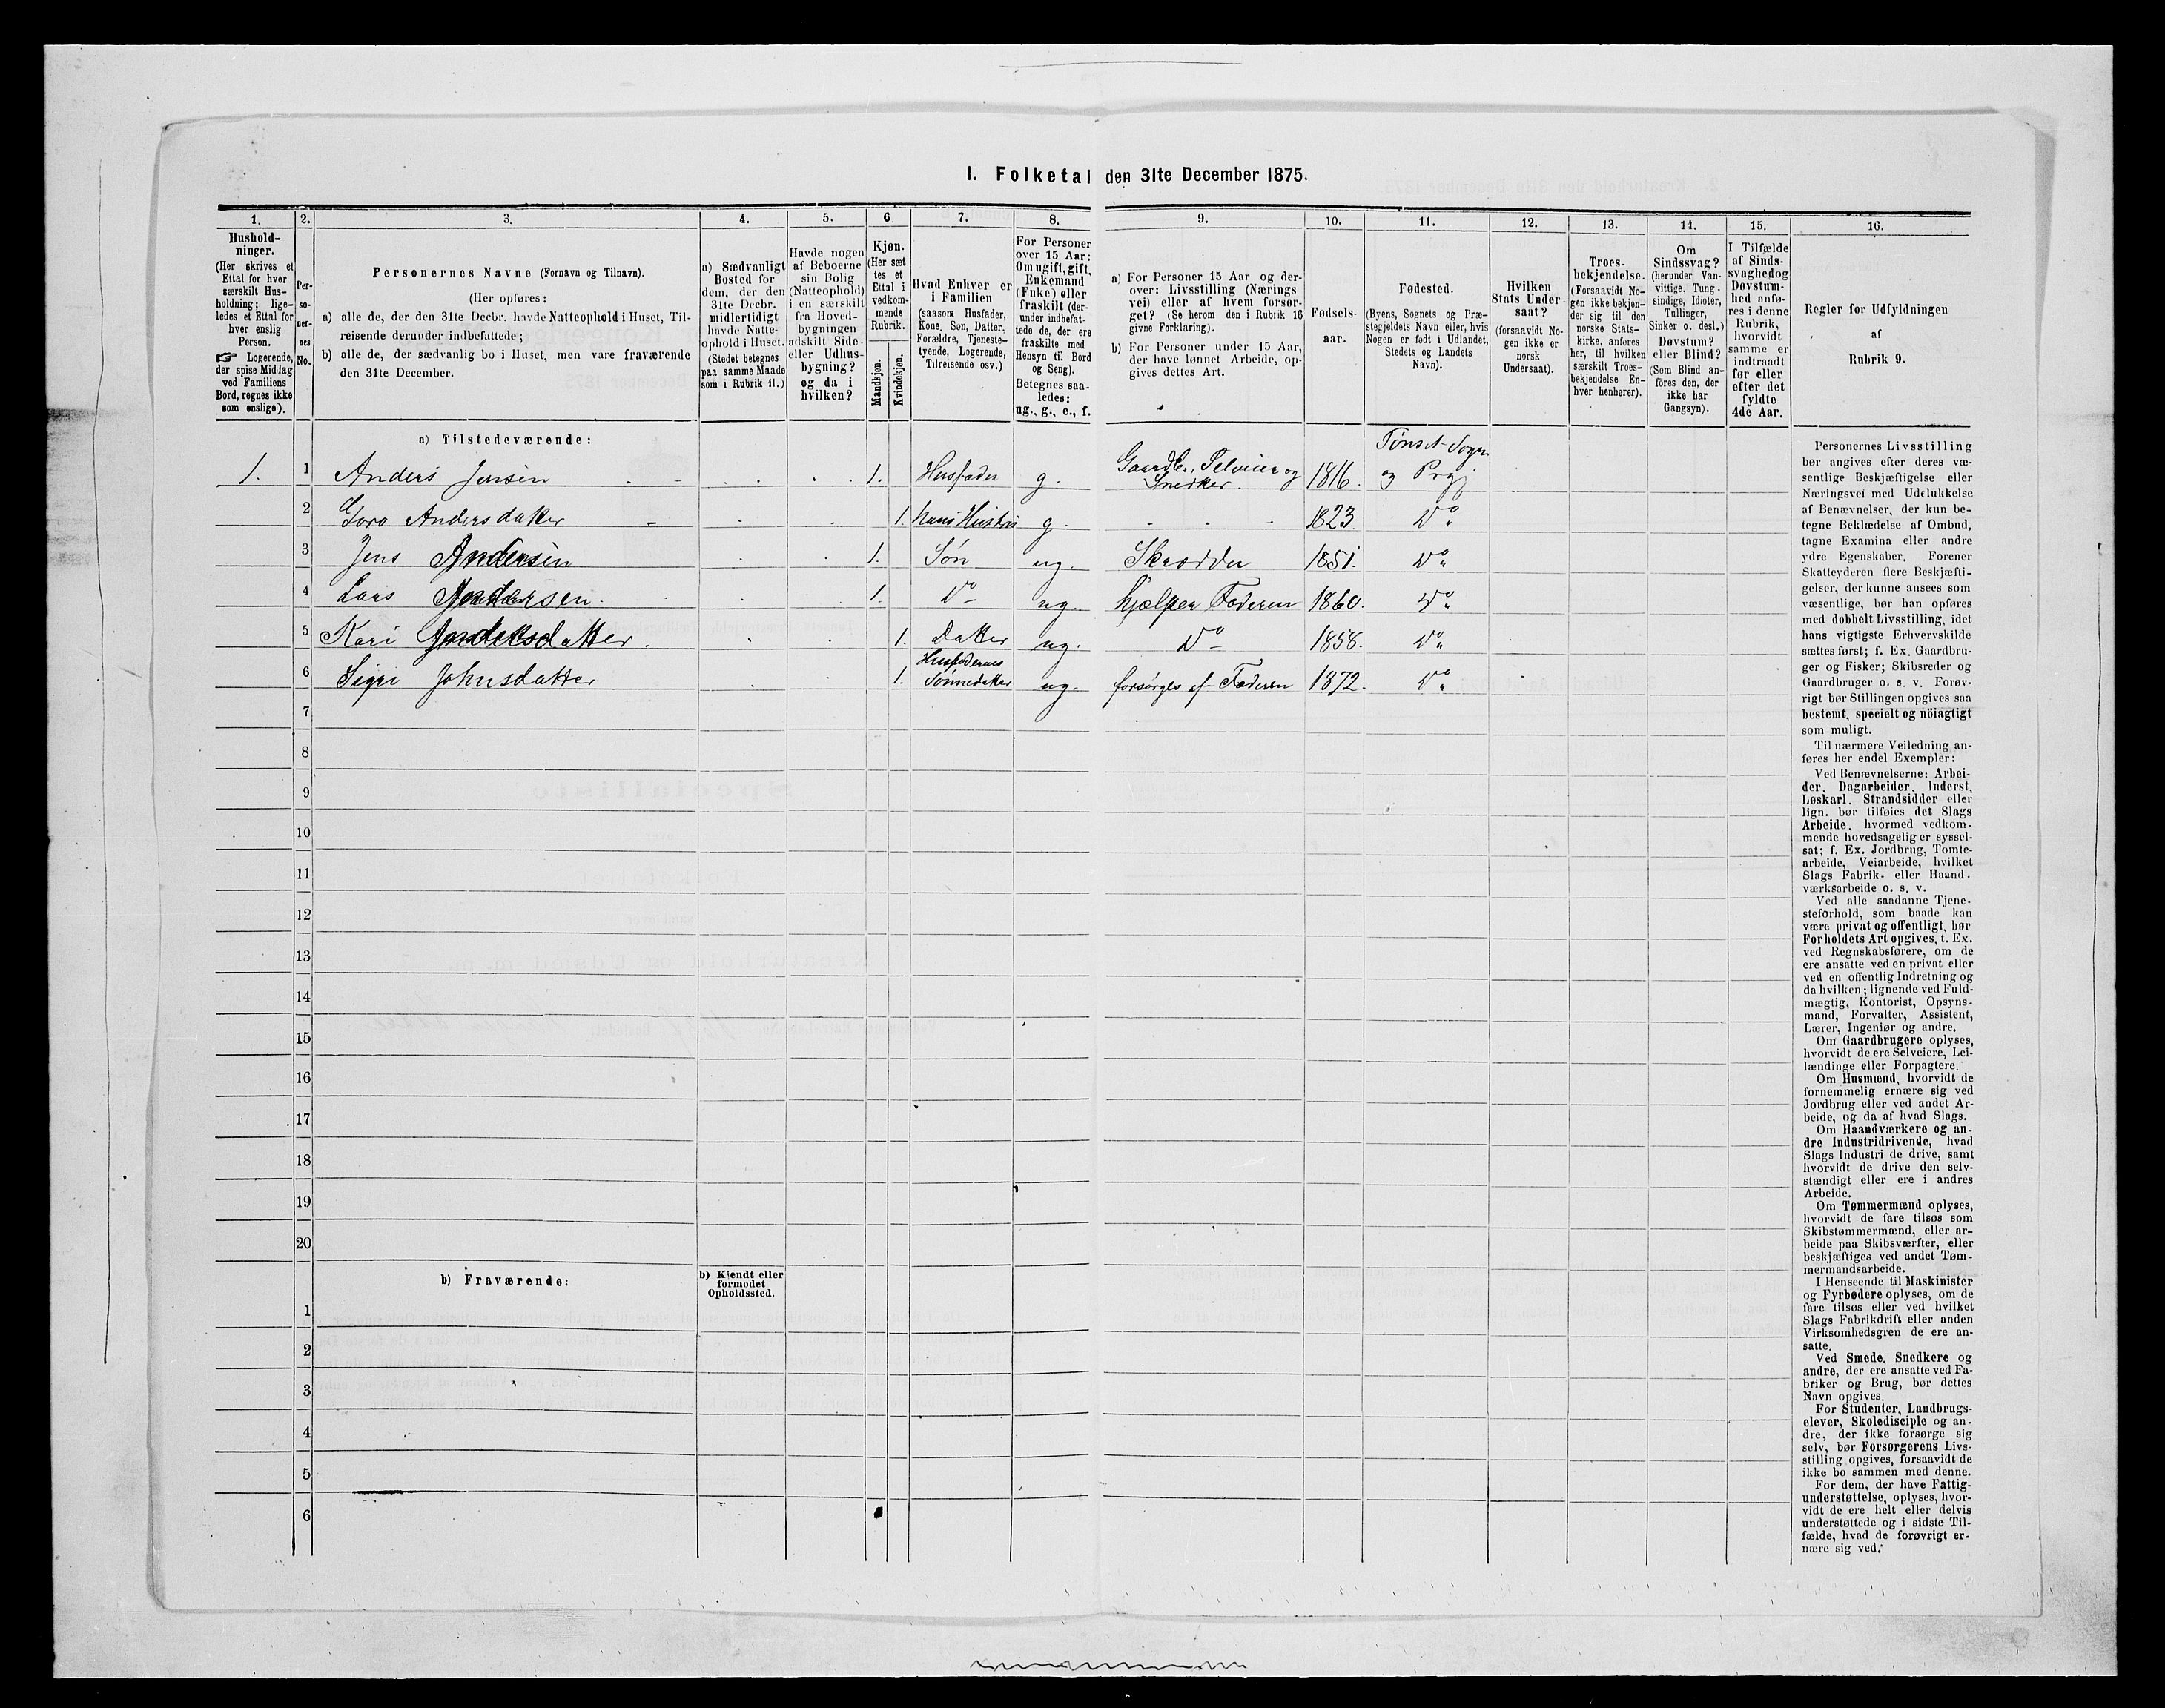 I. Folketal den 31te December 1875.
1. 2. 3. 4. 5. 6. 7. 8. 9. 10. 11. 12. 13. 14. 15. 16.
Hushold-
ninger.
(Her skrives et
Ettal for hver
særskilt Hus-
holdning; lige-
ledes et Ettal for
hver enslig
Person.
☞ Logerende,
der spise Middag
ved Familiens
Bord, regnes ikke
som enslige).
Per-
so-
ner-
nes
No.
Personernes Navne (Fornavn og Tilnavn).
(Her opføres:
a) alle de, der den 31te Decbr. havde Natteophold i Huset, Til-
reisende derunder indbefattede;
b) alle de, der sædvanlig bo i Huset, men vare fraværende
den 31te December.
a) Sædvanligt
Bosted for
dem, der den
31te Decbr.
midlertidigt
havde Natte-
ophold i Huset.
(Stedet betegnes
paa samme Maade
som i Rubrik 11.)
Havde nogen
af Beboerne
sin Bolig
(Natteophold)
i en særskilt
fra Hoved-
bygningen
adskilt Side-
eller Udhus-
bygning?
og da i
hvilken?
Kjøn.
(Her sæt
tes et
Ettal i
vedkom-
mende
Rubrik.
Mandkjøn.
Kvindekjøn.
Hvad Enhver er
i Familien
(saasom Husfader,
Kone, Søn, Datter,
Forældre, Tjeneste-
tyende, Logerende,
Tilreisende osv.)
For Personer
over 15 Aar:
Om ugift, gift,
Enkemand
(Enke) eller
fraskilt (der-
under indbefat-
tede de, der ere
fraskilte med
Hensyn til Bord
og Seng).
Betegnes saa-
ledes:
ug., g., e., f.
a) For Personer 15 Aar og der-
over: Livsstilling (Nærings
vei) eller af hvem forsør-
get? (Se herom den i Rubrik 16
givne Forklaring).
b) For Personer under 15 Aar,
der have lønnet Arbeide, op-
gives dettes Art.
Fødsels-
aar.
Fødested.
(Byens, Sognets og Præ-
stegjeldets Navn eller, hvis
Nogen er født i Udlandet,
Stedets og Landets
Navn).
Hvilken
Stats Under-
saat?
(forsaavidt No-
gen ikke er
norsk
Undersaat).
Troes-
bekjendelse.
(Forsaavidt No-
gen ikke bekjen-
der sig til den
norske Stats-
kirke, anføres
her, til hvilken
særskilt Troes-
bekjendelse En-
hver henhører).
Om
Sindssvag?
(herunder Van-
vittige, Tung-
sindige, Idioter,
Tullinger,
Sinker o. desl.)
Døvstum?
eller Blind?
(Som Blind an-
føres den, der
ikke har
Gangsyn).
I Tilfælde
af Sinds-
svaghed og
Døvstum-
hed anfø-
res i denne
Rubrik,
hvorvidt
samme er
indtraadt
før eller
efter det
fyldte
4de Aar.
Regler for Udfyldningen
af
Rubrik 9.
a) Tilstedeværende:
1. 1 Anders Jensen 1. Husfader g. Gaardbr., Selveier og Snedker. 1816. Tønset Sogn og Prgj
2 Goro Andersdatter 1. hans Hustru g. 1823. Do
3 Jens Andersen 1. Søn ug. Skrædder 1851. Do
4 Lars Andersen. 1. Do ug. hjælper Faderen 1860. Do
5 Kari Andersdatter. 1. Datter ug. Do 1858. Do
6 Sigri Johnsdatter 1. Husfaderens Sønnedatter ug. forsørges af Faderen 1872. Do
7
8
9
10
11
12
13
14
15
16
17
18
19
20
b) Fraværende:
b) Kjendt eller
formodet
Opholdssted.
1
2
3
4
5
6
Personernes Livsstilling
bør angives efter deres væ-
sentlige Beskjæftigelse eller
Næringsvei med Udelukkelse
af Benævnelser, der kun be-
tegne Beklædelse af Ombud,
tagne Examina eller andre
ydre Egenskaber. Forener
Skatteyderen flere Beskjæfti-
gelser, der kunne ansees som
væsentlige, bør han opføres
med dobbelt Livsstilling, idet
hans vigtigste Erhvervskilde
sættes først; f. Ex. Gaardbru-
ger og Fisker; Skibsreder og
Gaardbruger o. s. v. Forøv-
rigt bør Stillingen opgives saa
bestemt, specielt og nöiagtigt
som muligt.
Til nærmere Veiledning an-
føres her endel Exempler:
Ved Benævnelserne: Arbei-
der, Dagarbeider, Inderst,
Løskarl, Strandsidder eller
lign. bør tilføies det Slags
Arbeide, hvormed vedkom-
mende hovedsagelig er syssel-
sat; f. Ex. Jordbrug, Tomte-
arbeide, Veiarbeide, hvilket
Slags Fabrik- eller Haand-
værksarbeide o. s. v.
Ved alle saadanne Tjene-
steforhold, som baade kan
være privat og offentligt, bør
Forholdets Art opgives, t. Ex.
ved Regnskabsførere, om de
ere ansatte ved en privat eller
ved en offentlig Indretning og
da hvilken; lignende ved Fuld-
mægtig, Kontorist, Opsyns-
mand, Forvalter, Assistent,
Lærer, Ingeniør og andre.
Om Gaardbrugere oplyses,
hvorvidt de ere Selveiere, Lei-
lændinge eller Forpagtere.
Om Husmænd, hvorvidt de
fornemmelig ernære sig ved
Jordbrug eller ved andet Ar-
beide, og da af hvad Slags.
Om Haandværkere og an-
dre Industridrivende, hvad
Slags Industri de drive, samt
hvorvidt de drive den selv-
stændigt eller ere i andres
Arbeide.
Om Tømmermænd oplyses,
hvorvidt de fare tilsøs som
Skibstømmermænd, eller ar-
beide paa Skibsværfter, eller
beskjæftiges ved andet Tøm-
mermandsarbeide.
I Henseende til Maskinister
og Fyrbødere oplyses, om de
fare tilsøs eller ved hvilket
Slags Fabrikdrift eller anden
Virksomhedsgren de ere an-
satte.
Ved Smede, Snedkere og
andre, der ere ansatte ved Fa-
briker og Brug, bør dettes
Navn opgives.
For Studenter, Landbrugs-
elever, Skoledisciple og an-
dre, der ikke forsørge sig
selv, bør Forsørgerens Livs-
stilling opgives, forsaavidt de
ikke bo sammen med denne.
For dem, der have Fattig-
understøttelse, oplyses, hvor-
vidt de ere helt eller delvis
understøttede og i sidste Til-
fælde, hvad de forøvrigt er-
nære sig ved.